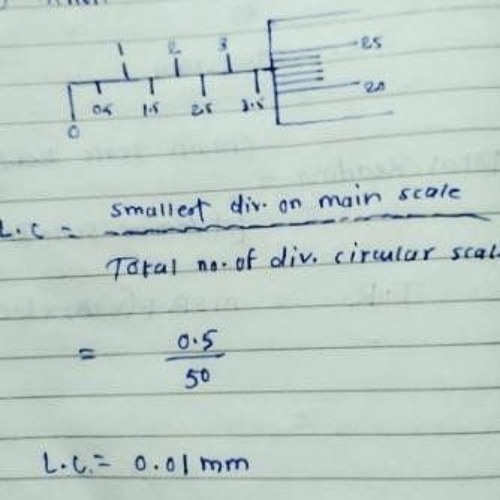 1 2 3 25
0 0.5 1.5 2.5 3.5 20
L.C = smallest div. on main scale
Total no. of div. circular scale
= 0.5
50
L.C. = 0.01 mm